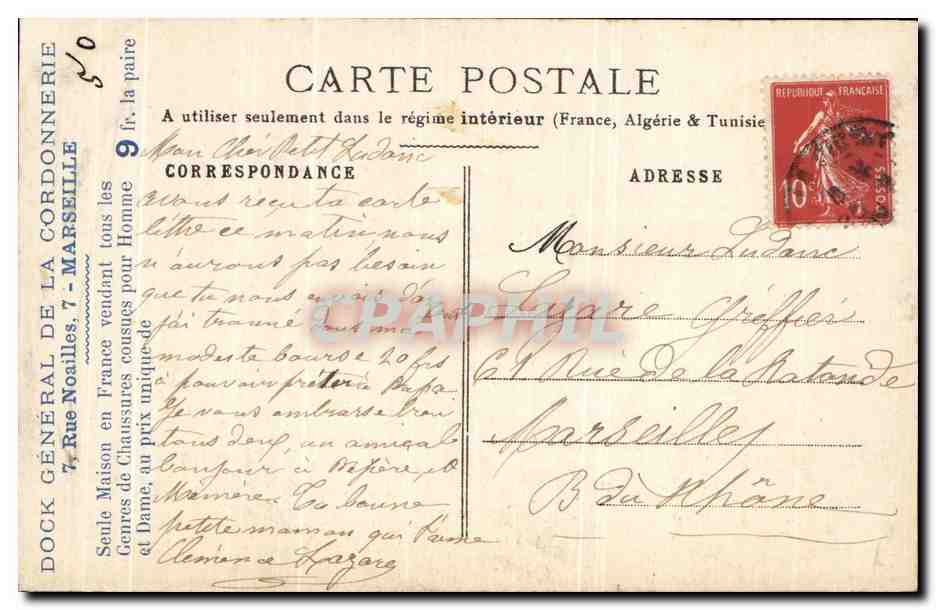 DOCK GÉNÉRAL DE LA CORDONNERIE
7, Rue Noailles, 7 - MARSEILLE
Seule Maison en France vendant tous les
Genres de Chaussures cousues pour Homme
et Dame, au prix unique de 9 fr. la paire
50
CARTE POSTALE
A utiliser seulement dans le régime intérieur (France, Algérie & Tunisie
CORRESPONDANCE
ADRESSE
REPUBLIQUE FRANÇAISE
10
POSTES
Mon Cher Petit Ludanc
avons reçu ta carte
lettre ce matin nous
n'aurons pas besoin
que tu nous
j'ai trouvé dans ma
modeste bourse 20 frs
à pouvoir prêter à Papa
Je vous embrasse
tous deux un amical
bonjour à Pépère et
Mémère Ta bonne
petite maman qui t'aime
Clémence Lazare
Monsieur Ludanc
Lazare Greffier
61 Rue de la Rotonde
Marseilles
B du Rhône
CPAPHIL